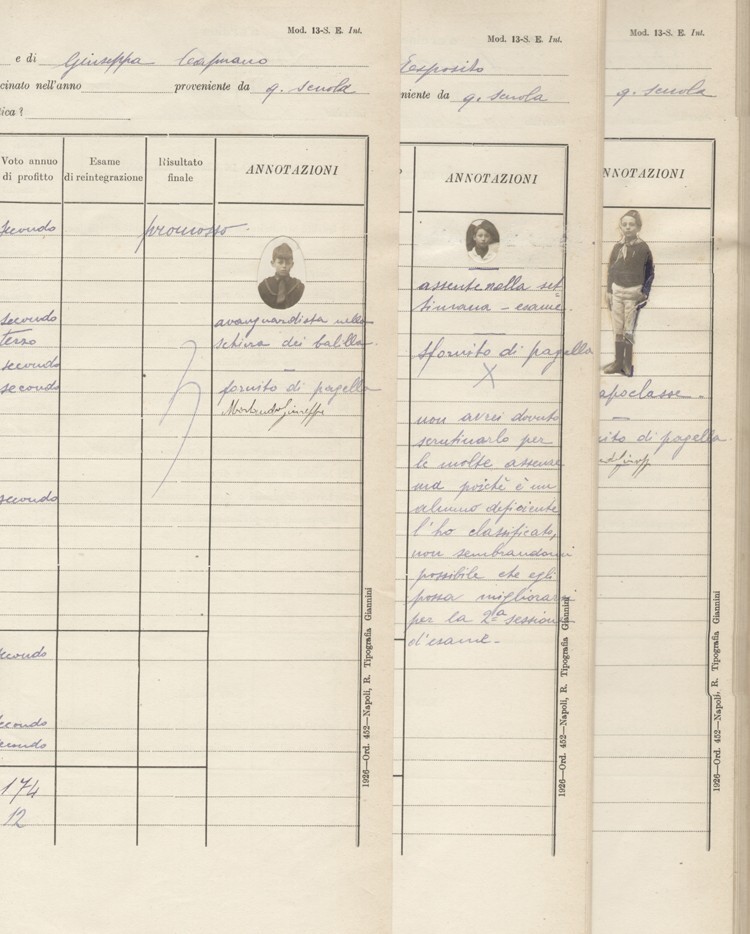 Mod. 13-S. E. Int.
e di Giuseppa Capuano
cinato nell'anno proveniente da q. scuola
ica ?
Voto annuo di profitto
Esame di reintegrazione
Risultato finale
ANNOTAZIONI
secondo promosso
secondo avanguardista nella
terzo schiera dei balilla.
secondo
secondo fornito di pagella
secondo
secondo
econdo
econdo
174
12
1926—Ord. 452—Napoli, R. Tipografia Giannini
Mod. 13-S. E. Int.
Esposito
niente da q. scuola
ANNOTAZIONI
assente nella set
timana - esame.
sfornito di pagella
X
non avrei dovuto
scrutinarlo per
le molte assenze
ma poichè è un
alunno deficiente
l'ho classificato,
non sembrandomi
possibile che egli
possa migliorarsi
per la 2ª sessione
d'esame -
1926—Ord. 452—Napoli, R. Tipografia Giannini
Mod. 13-S. E. Int.
q. scuola
NNOTAZIONI
apoclasse.
ito di pagella
1926—Ord. 452—Napoli, R. Tipografia Giannini